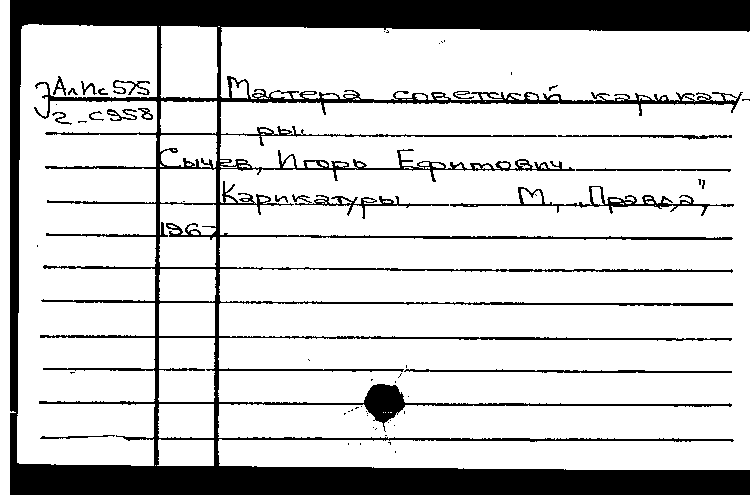 АлИс575 Мастера советской карикату-
2-с958
ры.
Сычев, Игорь Ефимович.
Карикатуры. М., „Правда",
1967.